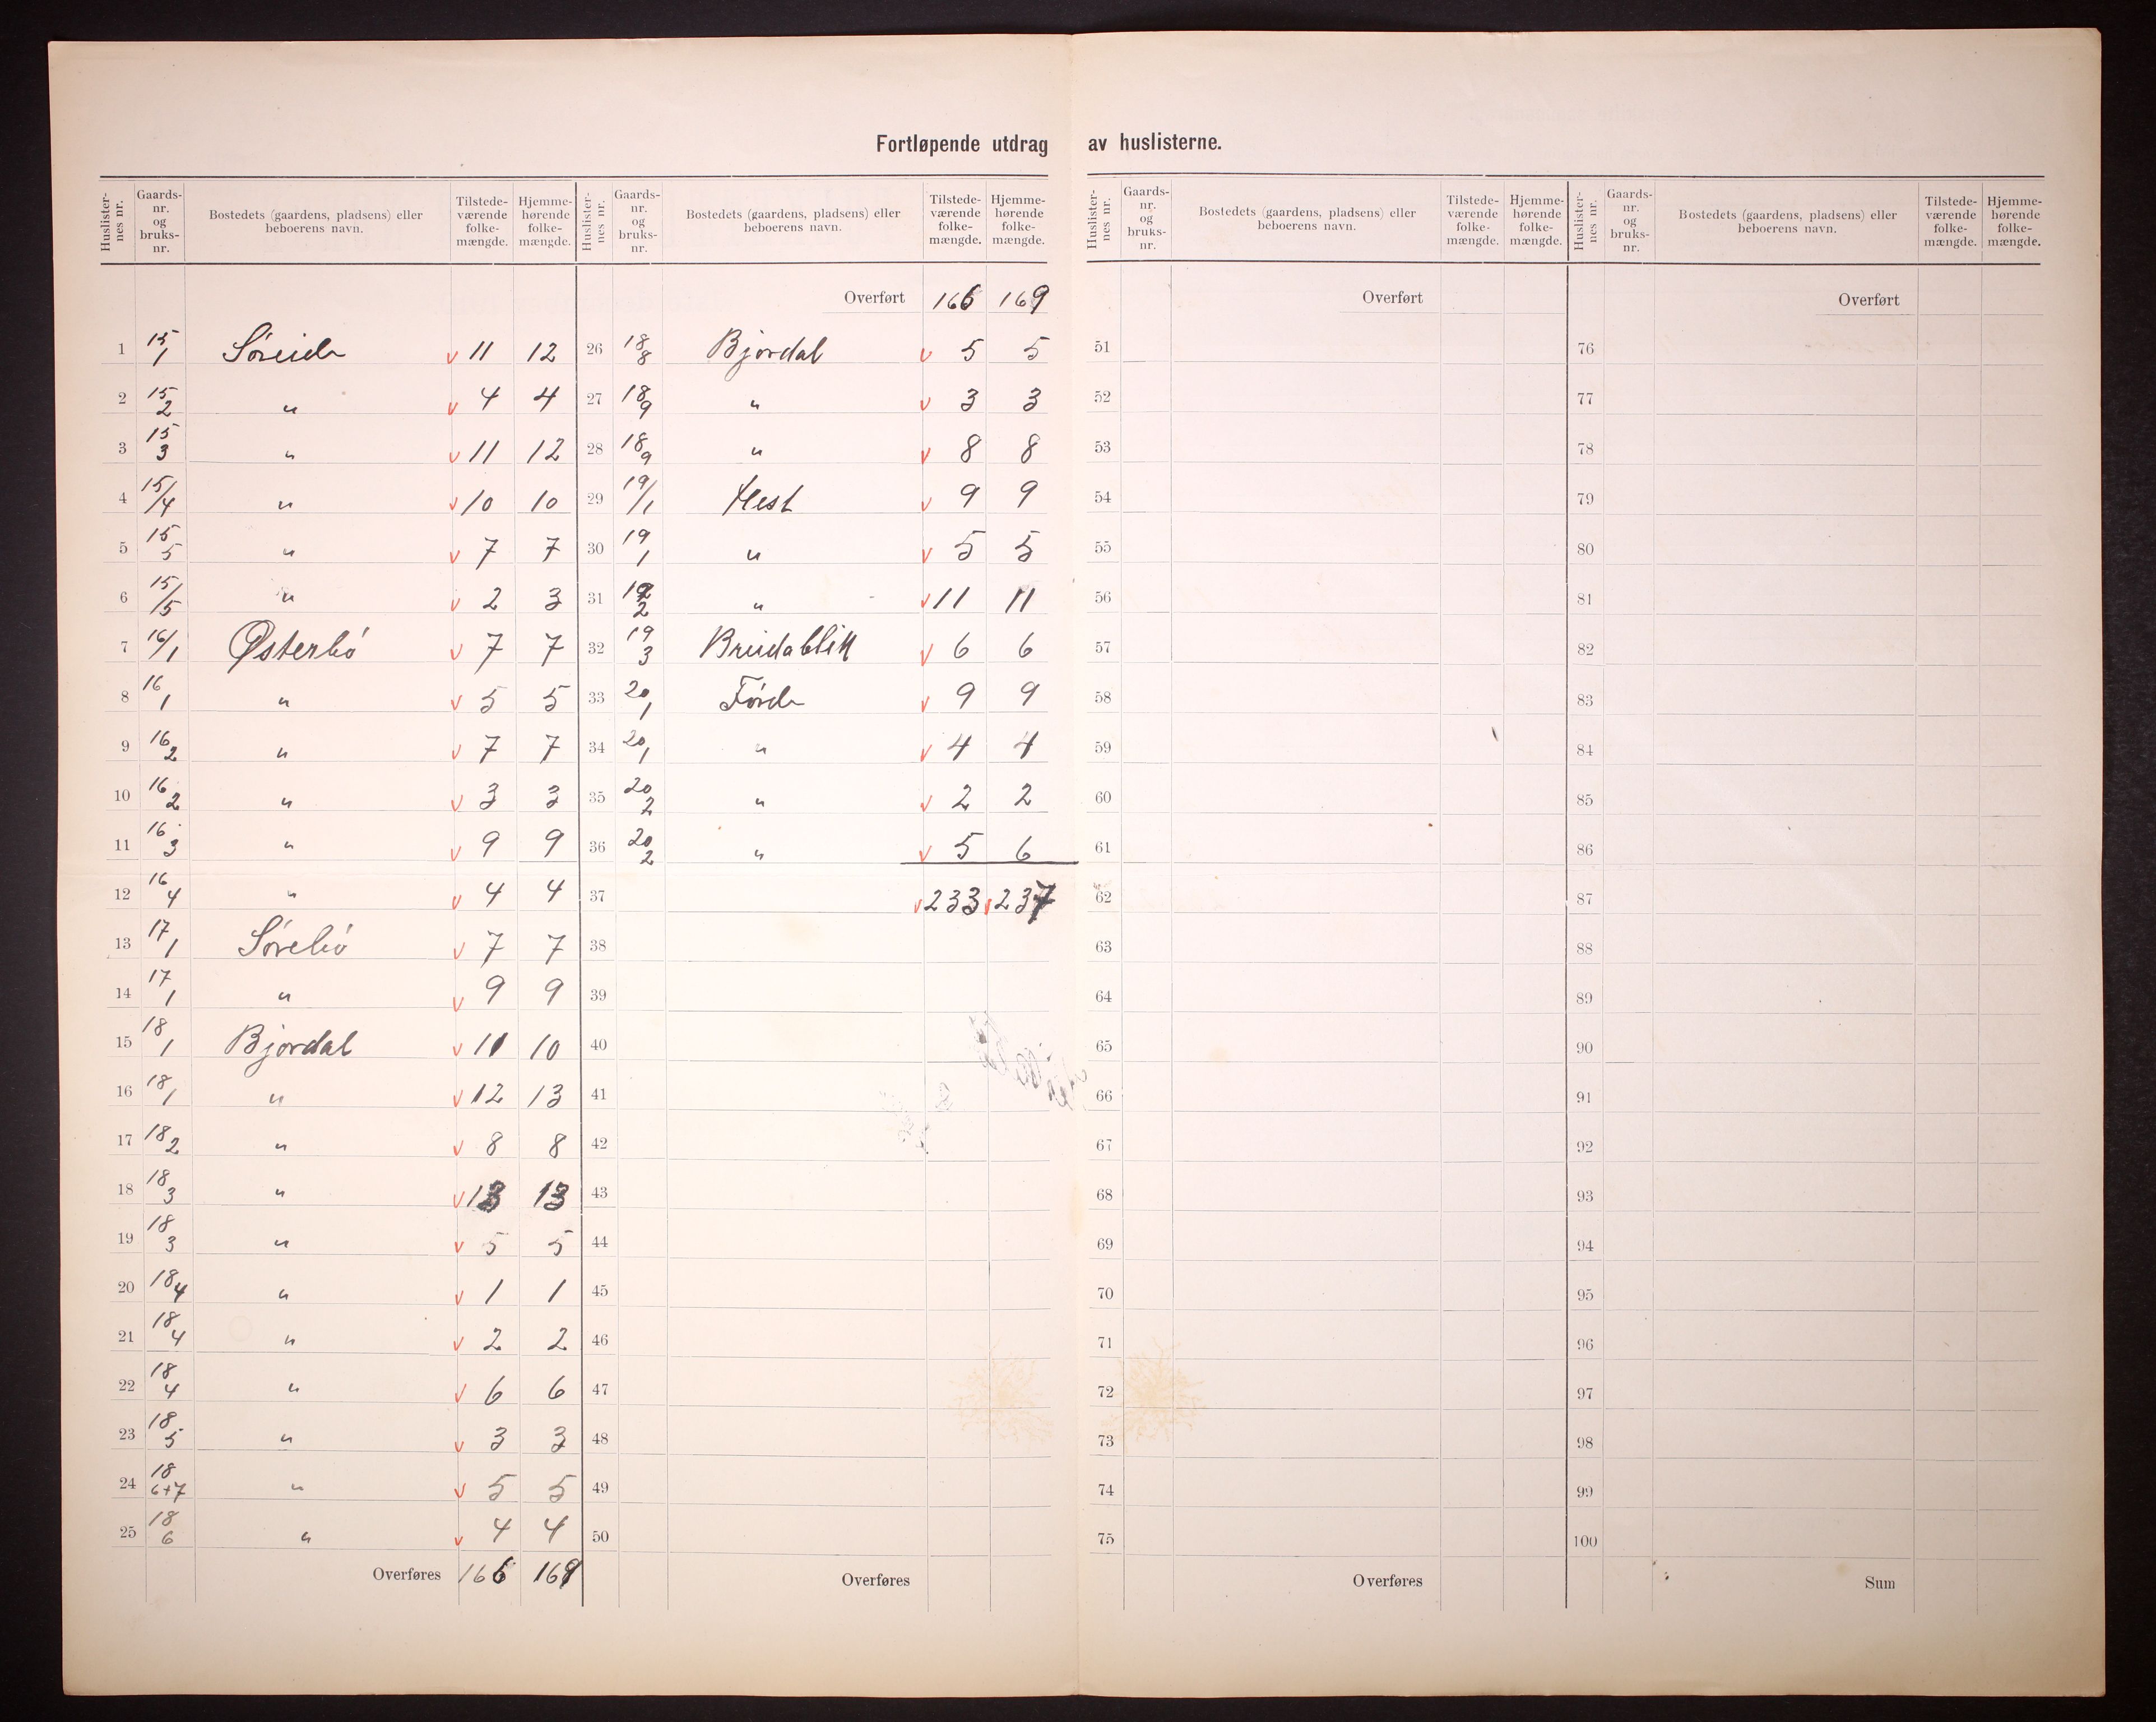 Fortløpende utdrag av huslisterne.
Huslisternes nr. Gaards-nr. og bruks-nr. Bostedets (gaardens, pladsens) eller beboerens navn. Tilstede-værende folke-mængde. Hjemme-hørende folke-mængde.
1 15/1 Søreide v 11 12
2 15/2 " v 4 4
3 15/3 " v 11 12
4 15/4 " v 10 10
5 15/5 " v 7 7
6 15/5 " v 2 3
7 16/1 Østerbø v 7 7
8 16/1 " v 5 5
9 16/2 " v 7 7
10 16/2 " v 3 3
11 16/3 " v 9 9
12 16/4 " v 4 4
13 17/1 Sørebø v 7 7
14 17/1 " v 9 9
15 18/1 Bjordal v 11 10
16 18/1 " v 12 13
17 18/2 " v 8 8
18 18/3 " v 13 13
19 18/3 " v 5 5
20 18/4 " v 1 1
21 18/4 " v 2 2
22 18/4 " v 6 6
23 18/5 " v 3 3
24 18/6+7 " v 5 5
25 18/6 " v 4 4
Overføres 166 169
Huslisternes nr. Gaards-nr. og bruks-nr. Bostedets (gaardens, pladsens) eller beboerens navn. Tilstede-værende folke-mængde. Hjemme-hørende folke-mængde.
Overført 166 169
26 18/8 Bjordal v 5 5
27 18/9 " v 3 3
28 18/9 " v 8 8
29 19/1 Hest v 9 9
30 19/1 " v 5 5
31 19/2 " v 11 11
32 19/3 Breidablik v 6 6
33 20/1 Førde v 9 9
34 20/1 " v 4 4
35 20/2 " v 2 2
36 20/2 " v 5 6
37 v 233 v 237
38
39
40
41
42
43
44
45
46
47
48
49
50
Overføres
Huslisternes nr. Gaards-nr. og bruks-nr. Bostedets (gaardens, pladsens) eller beboerens navn. Tilstede-værende folke-mængde. Hjemme-hørende folke-mængde.
Overført
51
52
53
54
55
56
57
58
59
60
61
62
63
64
65
66
67
68
69
70
71
72
73
74
75
Overføres
Huslisternes nr. Gaards-nr. og bruks-nr. Bostedets (gaardens, pladsens) eller beboerens navn. Tilstede-værende folke-mængde. Hjemme-hørende folke-mængde.
Overført
76
77
78
79
80
81
82
83
84
85
86
87
88
89
90
91
92
93
94
95
96
97
98
99
100
Sum